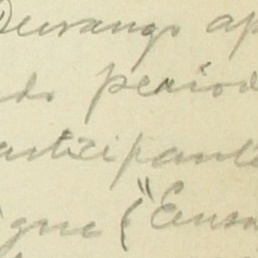 Durango ap
do period
articipante
que ("Ensa